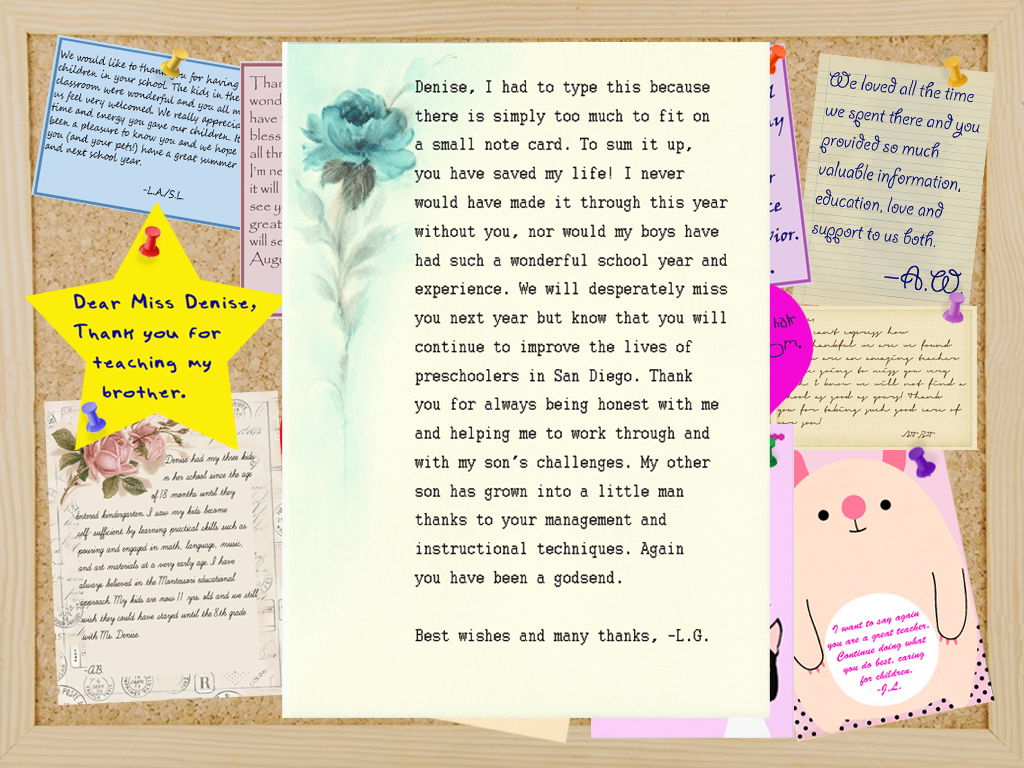 We would like to thank you for having
children in your school. The kids in the
classroom were wonderful and you all m
us feel very welcomed. We really apprecia
time and energy you gave our children. It
been a pleasure to know you and we hope
you (and your pets!) have a great summer
and next school year.
-L.A/S.L.
Than
wond
have
bless
all thr
I'm ne
it will
see yo
great
will se
Augu
Dear Miss Denise,
Thank you for
teaching my
brother.
Denise had my three kids
n her school since the age
of 18 months until they
entered kindergarten. I saw my kids become
self-sufficient by learning practical skills such as
pouring and engaged in math, language, music,
and art materials at a very early age. I have
always believed in the Montessori educational
approach. My kids are now 11 yrs. old and we still
wish they could have stayed until the 8th grade
with Ms. Denise.
-A.B.
Denise, I had to type this because
there is simply too much to fit on
a small note card. To sum it up,
you have saved my life! I never
would have made it through this year
without you, nor would my boys have
had such a wonderful school year and
experience. We will desperately miss
you next year but know that you will
continue to improve the lives of
preschoolers in San Diego. Thank
you for always being honest with me
and helping me to work through and
with my son's challenges. My other
son has grown into a little man
thanks to your management and
instructional techniques. Again
you have been a godsend.
Best wishes and many thanks, -L.G.
vior.
hair
om.
We loved all the time
we spent there and you
provided so much
valuable information,
education, love and
support to us both.
-A.W.
can't express how
hankful we are we found
are an amazing teacher
going to miss you very
I know we will not find a
hool as good as yours! Thank
you for taking such good care of
our son!
I want to say again
you are a great teacher.
Continue doing what
you do best, caring
for children.
-J.L.